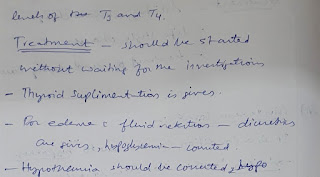 levels of T3 and T4.
Treatment - should be started
without waiting for the investigations
- Thyroid Suplimentation is given.
- For edema & fluid retention - diuretics
are given, hypoglycemia - corrected.
- Hypothermia should be corrected,